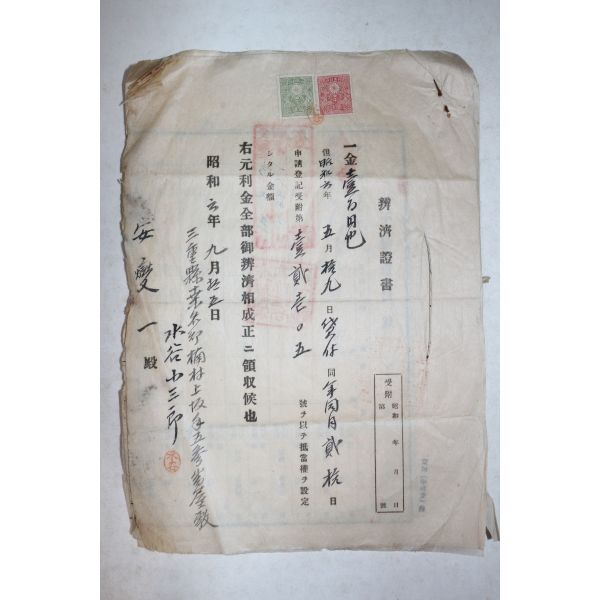 辨濟證書
受附 昭和 年 月 日
第 號
一金壹百円也
但昭和六年五月拾九日貸付同年同月貳拾日
申請登記受附第壹貳壱〇五號ヲ以テ抵當權ヲ設定
シタル金額
右元利金全部御辨濟相成正ニ領収候也
昭和六年九月廿五日
三重縣桑名郡楠村上坂手五
水谷小三郎
安變一殿